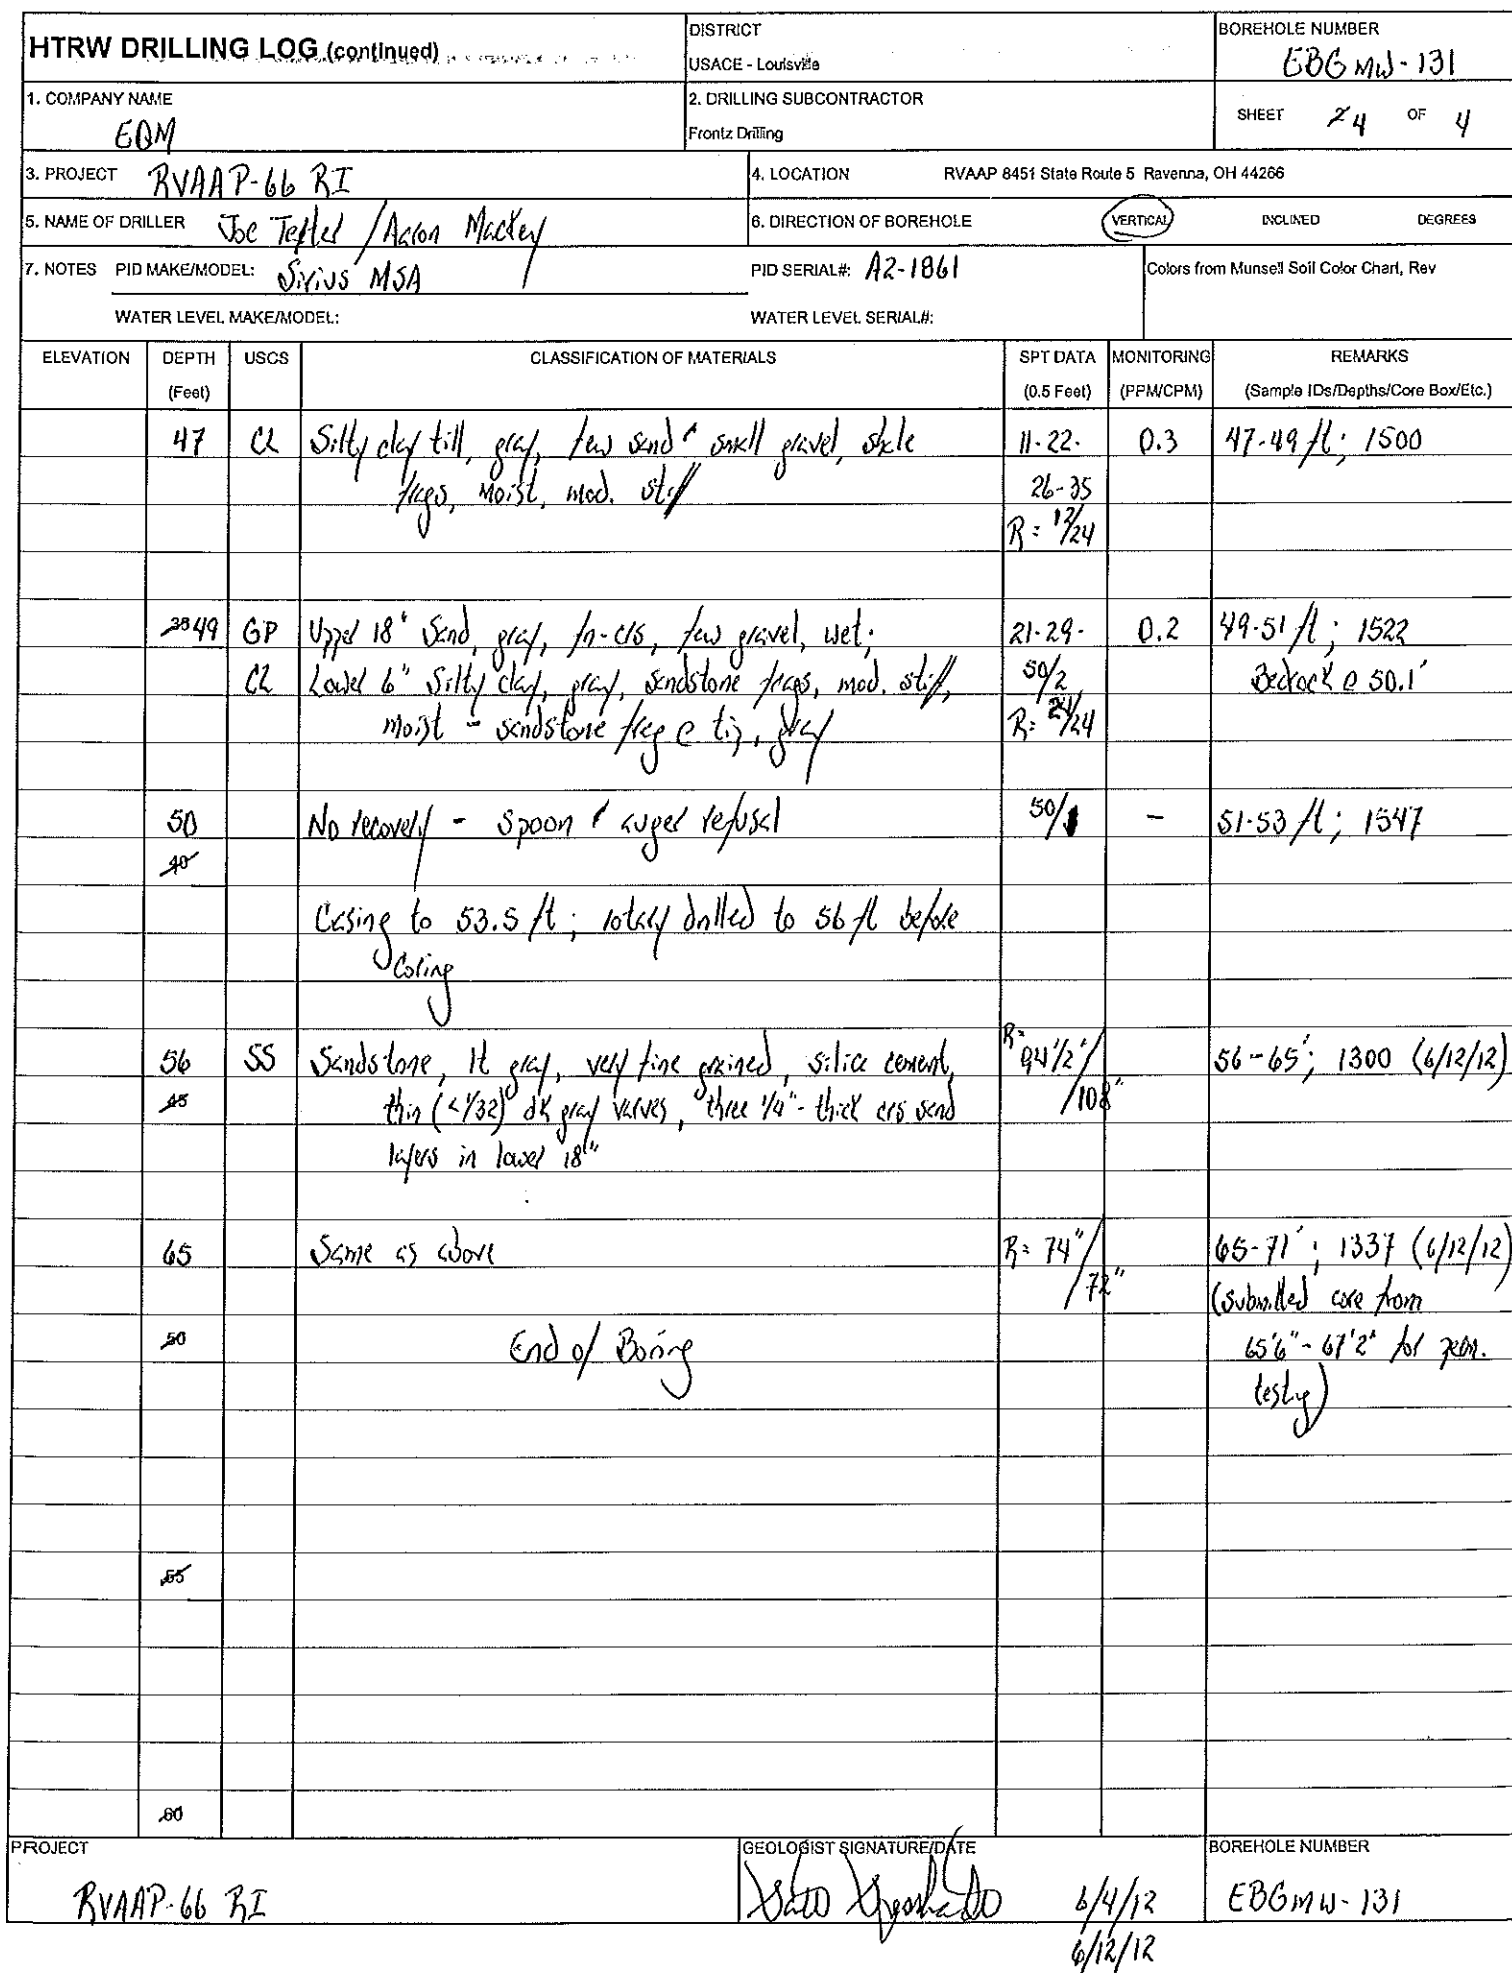 HTRW DRILLING LOG (continued)
DISTRICT
USACE - Louisville
BOREHOLE NUMBER
EBGMW-131
1. COMPANY NAME
EQM
2. DRILLING SUBCONTRACTOR
Frontz Drilling
SHEET 4 OF 4
3. PROJECT RVAAP-66 RI
4. LOCATION RVAAP 8451 State Route 5 Ravenna, OH 44266
5. NAME OF DRILLER Joe / Aaron Mackey
6. DIRECTION OF BOREHOLE VERTICAL INCLINED DEGREES
7. NOTES PID MAKE/MODEL: Sirius MSA
PID SERIAL#: A2-1861
Colors from Munsell Soil Color Chart, Rev
WATER LEVEL MAKE/MODEL:
WATER LEVEL SERIAL#:
ELEVATION DEPTH (Feet) USCS CLASSIFICATION OF MATERIALS SPT DATA (0.5 Feet) MONITORING (PPM/CPM) REMARKS (Sample IDs/Depths/Core Box/Etc.)
47 CL Silty clay till, gray, few sand & small gravel, shale 11-22- 0.3 47-49 ft; 1500
frags, moist, mod. stiff 26-35
R = 12/24
35 49 GP Upper 18" Sand, gray, fn-crs, few gravel, wet; 21-29- 0.2 49-51 ft; 1522
CL Lower 6" Silty clay, gray, sandstone frags, mod. stiff, 50/2 Bedrock @ 50.1'
moist - sandstone frag @ tip, gray R= 24/24
50 No recovery - Spoon & auger refusal 50/1 - 51-53 ft; 1547
40
Casing to 53.5 ft; rotary drilled to 56 ft before
coring
56 SS Sandstone, lt gray, very fine grained, silica cement, R= 94 1/2"/ 56-65'; 1300 (6/12/12)
45 thin (<1/32)" dk gray varves, three 1/4"-thick crs sand /108"
layers in lower 18"
65 Same as above R= 74"/ 65-71'; 1337 (6/12/12)
/72" (submitted core from
50 End of Boring 65'6"- 67'2" for perm.
testing)
55
60
PROJECT
RVAAP-66 RI
GEOLOGIST SIGNATURE/DATE
6/4/12
6/12/12
BOREHOLE NUMBER
EBGMW-131